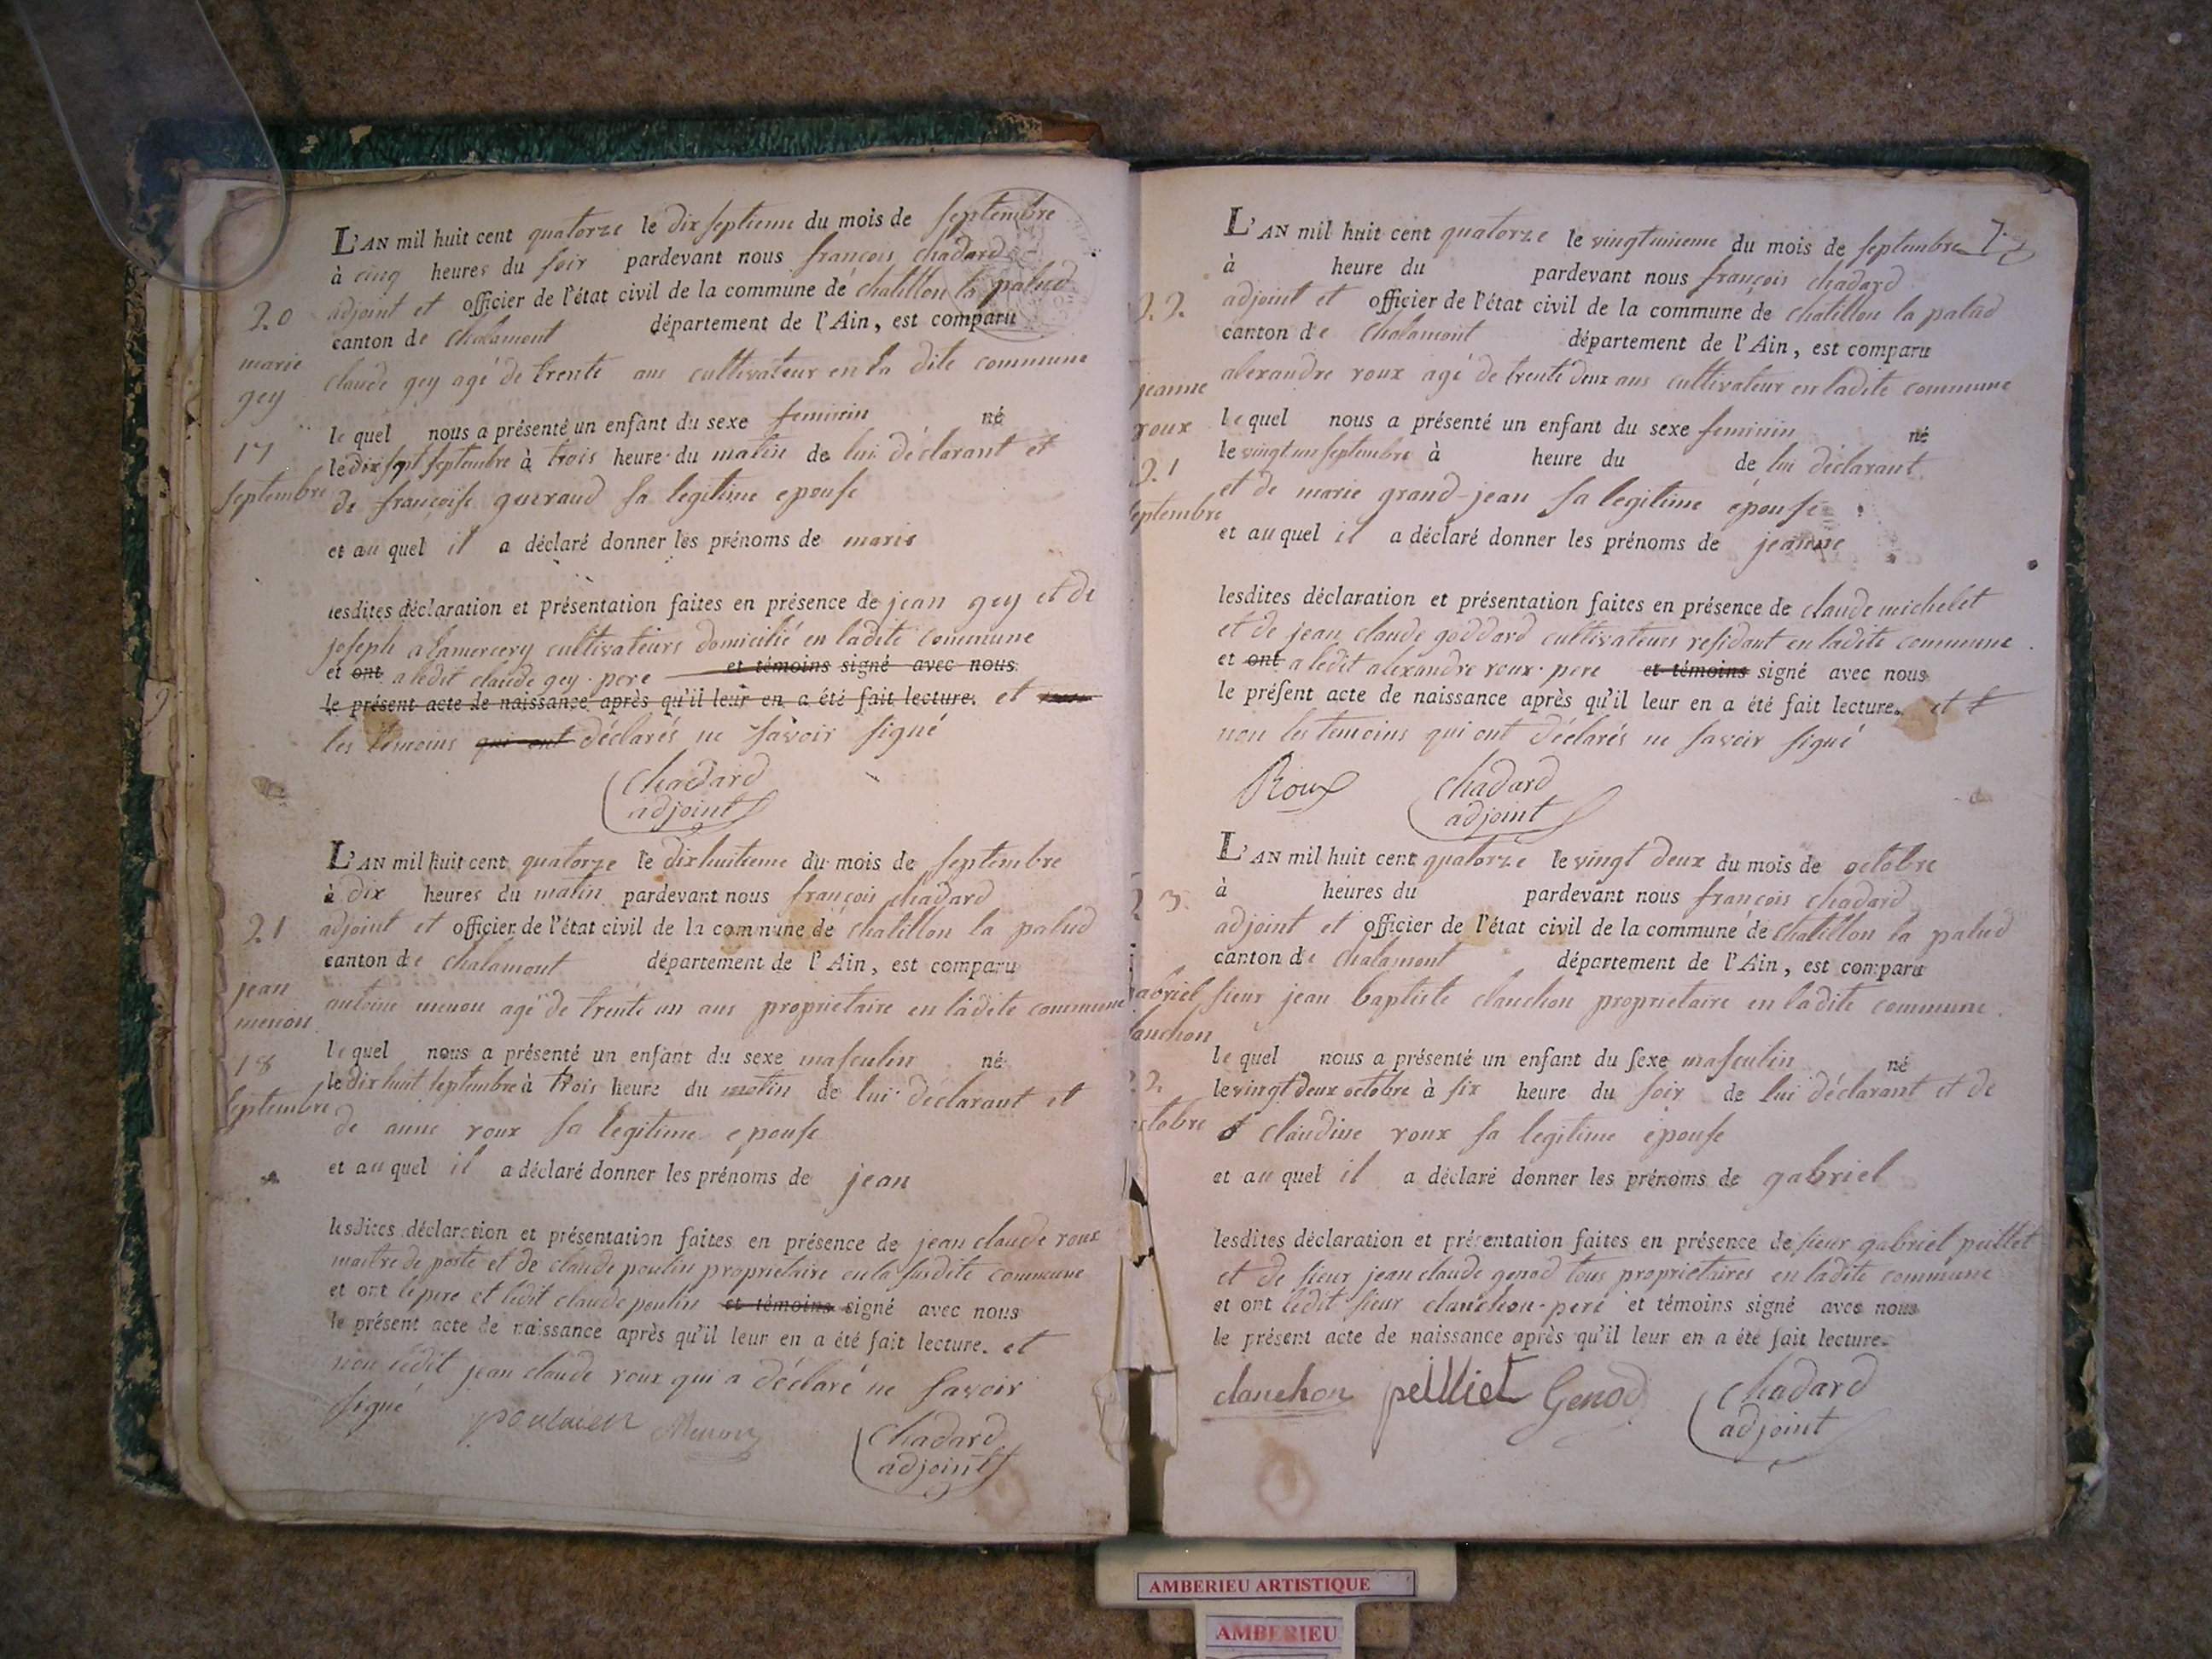 L'AN mil huit cent quatorze le dix septieme du mois de septembre
à cinq heures du soir pardevant nous françois chadard
adjoint et officier de l'état civil de la commune de chatillon la palud
canton de chalamont département de l'Ain, est comparu
claude gey agé de trente ans cultivateur en la dite commune
le quel nous a présenté un enfant du sexe feminin né
le dix sept septembre à trois heure du matin de lui déclarant et
de françoise guerraud sa legitime epouse
et au quel il a déclaré donner les prénoms de marie
lesdites déclaration et présentation faites en présence de jean gey et de
joseph alamercery cultivateurs domicilié en ladite commune
et ont a ledit claude gey pere et témoins signé avec nous
le présent acte de naissance après qu'il leur en a été fait lecture. et
les temoins qui ont déclarés ne savoir signé
chadard
adjoint
20
marie
gey
17
septembre
L'AN mil huit cent quatorze le dix huitieme du mois de septembre
à dix heures du matin pardevant nous françois chadard
adjoint et officier de l'état civil de la commune de chatillon la palud
canton de chalamont département de l'Ain, est comparu
antoine menou agé de trente un ans proprietaire en ladite commune
le quel nous a présenté un enfant du sexe masculin né
le dix huit septembre à trois heure du matin de lui declarant et
de anne roux sa legitime epouse
et au quel il a déclaré donner les prénoms de jean
lesdites déclaration et présentation faites en présence de jean claude roux
maitre de poste et de claude poulin proprietaire en la susdite commune
et ont le pere et ledit claude poulin et témoins signé avec nous
le présent acte de naissance après qu'il leur en a été fait lecture. et
non ledit jean claude roux qui a déclaré ne savoir
signé
Menou
chadard
adjoint
21
jean
menou
18
septembre
7
L'AN mil huit cent quatorze le vingt unieme du mois de septembre
à heure du pardevant nous françois chadard
adjoint et officier de l'état civil de la commune de chatillon la palud
canton de chalamont département de l'Ain, est comparu
alexandre roux agé de trente deux ans cultivateur en ladite commune
le quel nous a présenté un enfant du sexe feminin né
le vingt un septembre à heure du de lui déclarant
et de marie grand-jean sa legitime épouse
et au quel il a déclaré donner les prénoms de jeanne
lesdites déclaration et présentation faites en présence de claude michelet
et de jean claude goddard cultivateurs residant en ladite commune
et ont a ledit alexandre roux pere et témoins signé avec nous
le présent acte de naissance après qu'il leur en a été fait lecture. et
non les temoins qui ont déclarés ne savoir signé
Roux chadard
adjoint
22
jeanne
roux
21
septembre
L'AN mil huit cent quatorze le vingt deux du mois de octobre
à heures du pardevant nous françois chadard
adjoint et officier de l'état civil de la commune de chatillon la palud
canton de chalamont département de l'Ain, est comparu
sieur jean baptiste clanchon proprietaire en ladite commune
le quel nous a présenté un enfant du sexe masculin né
le vingt deux octobre à six heure du soir de lui déclarant et de
claudine roux sa legitime épouse
et au quel il a déclaré donner les prénoms de gabriel
lesdites déclaration et présentation faites en présence de sieur gabriel peilliet
et de sieur jean claude genod tous proprietaires en ladite commune
et ont ledit sieur clanchon pere et témoins signé avec nous
le présent acte de naissance après qu'il leur en a été fait lecture.
clanchon peilliet Genod chadard
adjoint
23
gabriel
clanchon
22
octobre
AMBERIEU ARTISTIQUE
AMBERIEU